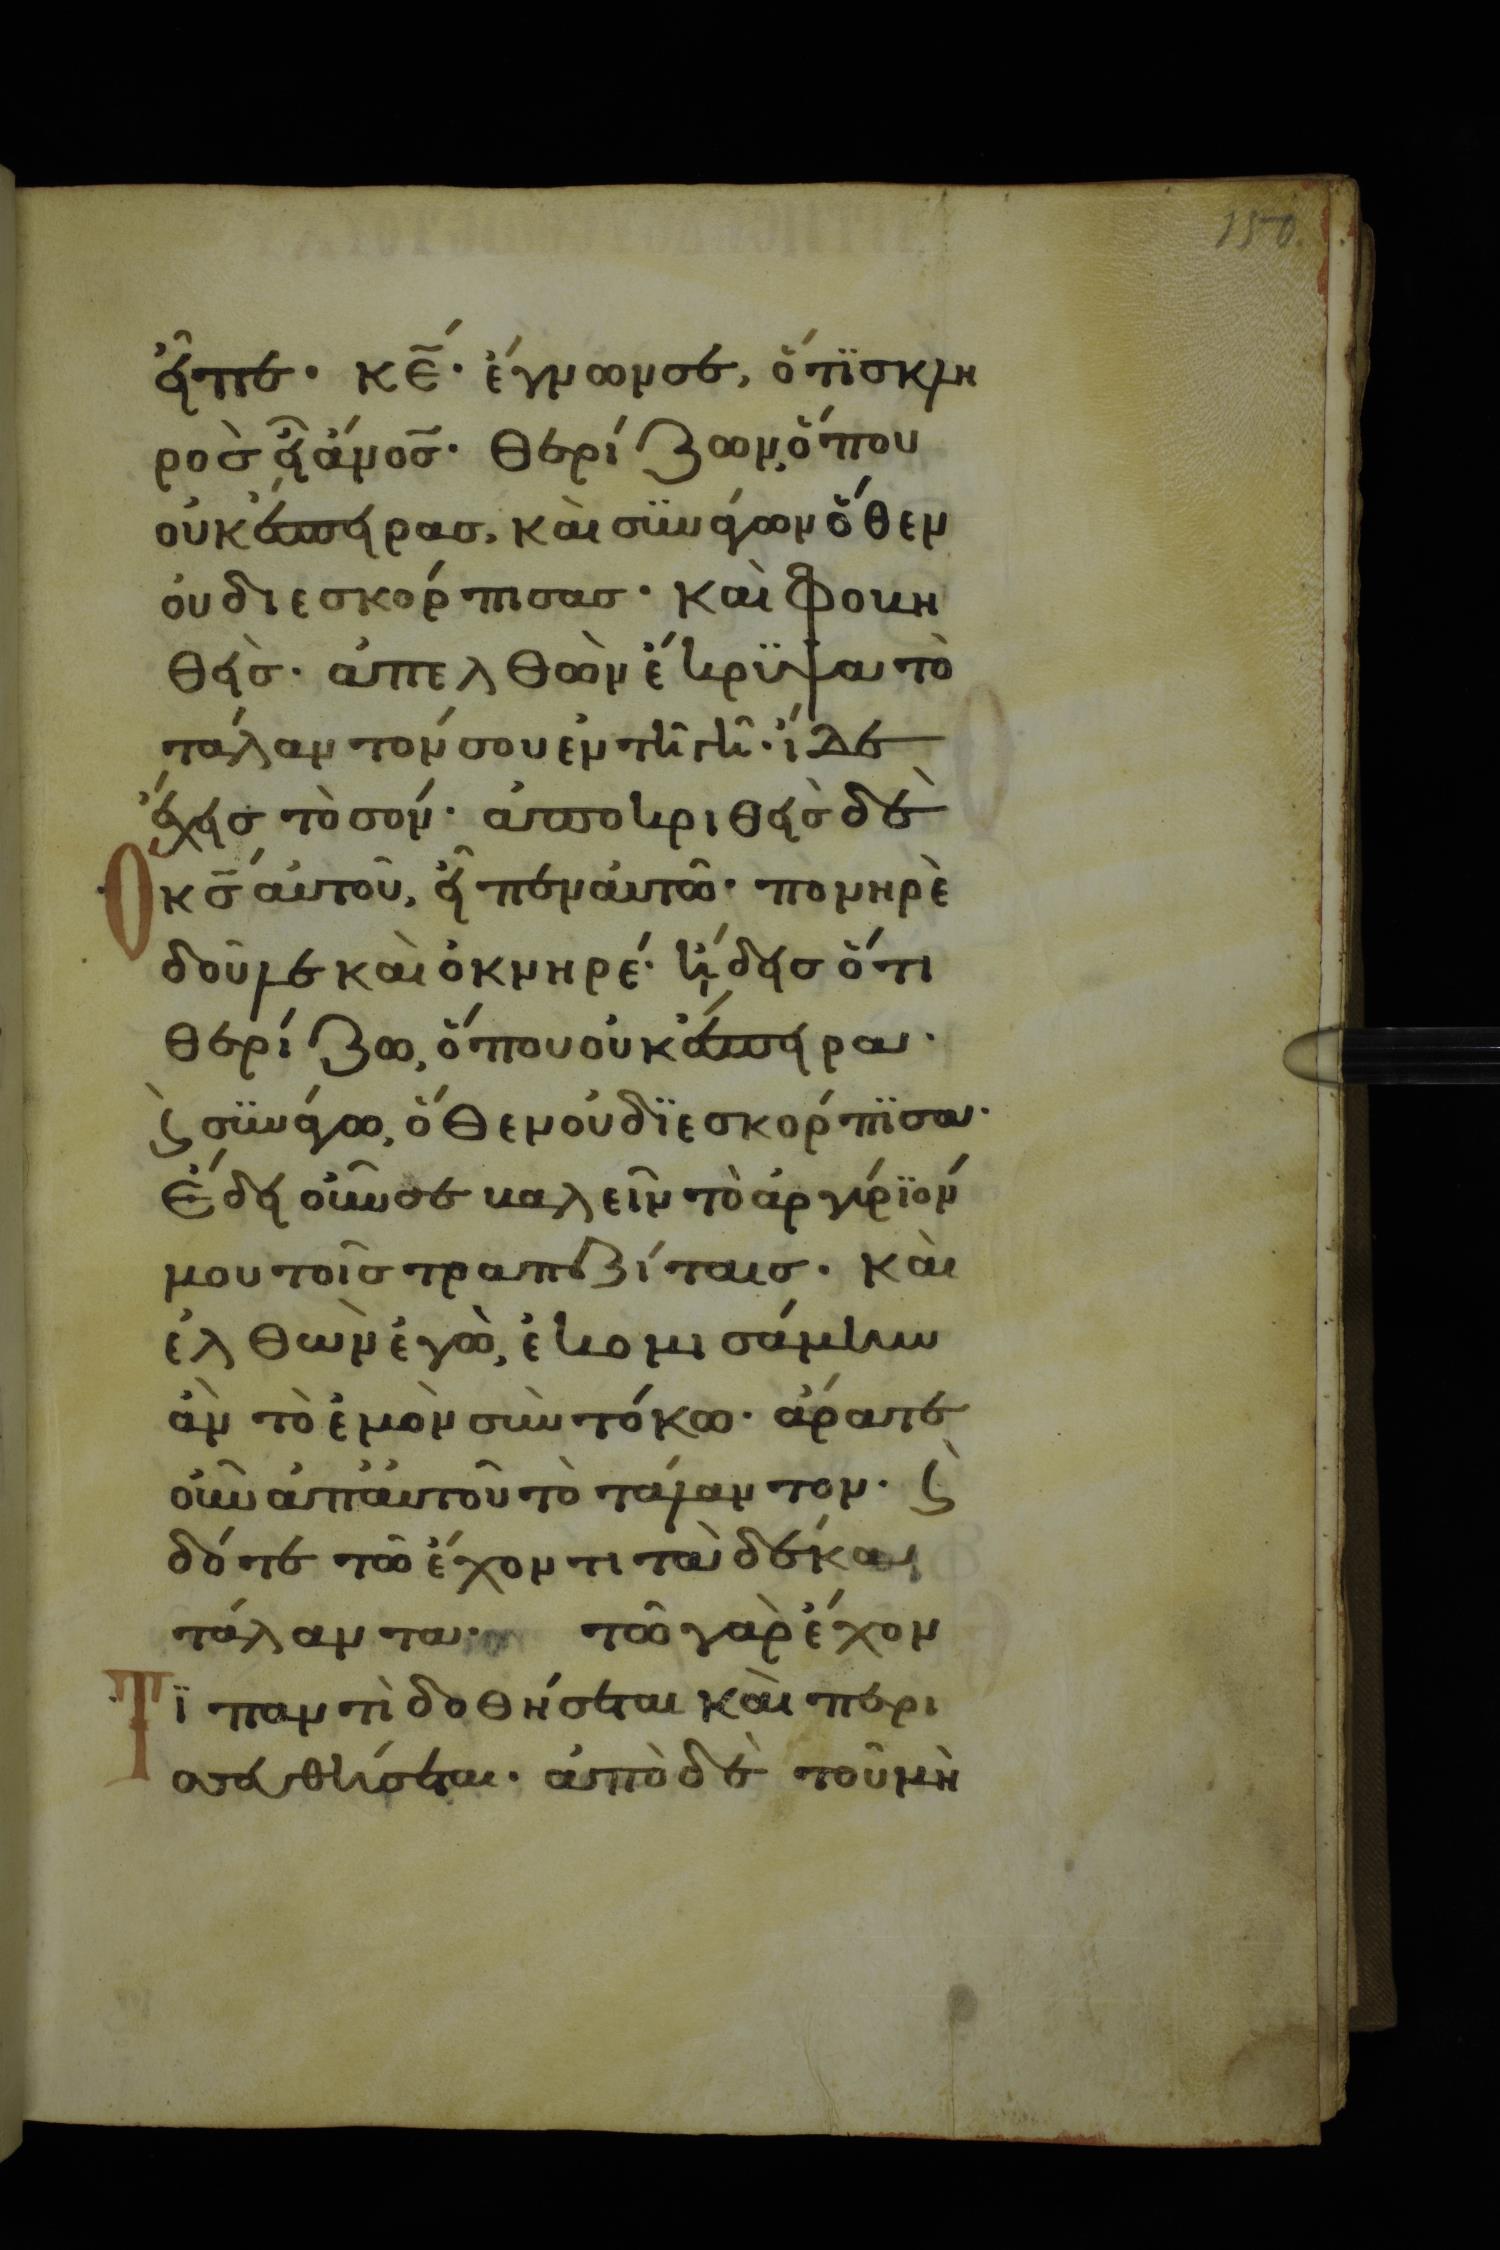 150.
εἶπε· κε̅· ἔγνων σε, ὅτϊ σκλη
ρὸς εἶ ἄνος̅· θερίζων, ὅπου
οὐκ ἔσπειρας, καὶ σϋνάγων ὅθεν
οὐ διεσκόρπισας· καὶ φοβη
θεὶς· ἀπελθὼν ἔκρϋψα τὸ
τάλαντόν σου ἐν τῆ γῆ· ἴδε
ἔχεις τὸ σόν· ἀποκριθεὶς δὲ
Ὁ κς̅ αὐτοῦ, εἶπεν αὐτῶ· πονηρὲ
δοῦλε καὶ ὀκνηρέ· ἤδεις ὅτι
θερίζω, ὅπου οὐκ ἔσπειρα·
ϗ̀ σϋνάγω, ὅθεν οὐ δϊεσκόρπϊσα·
ἔδει οὖν σε βαλεῖν τὸ ἀργύρϊόν
μου τοῖς τραπεζίταις· καὶ
ἐλθὼν ἐγὼ, ἐκομισάμην
ἂν τὸ ἐμὸν σὺν τόκω· ἄρατε
οὖν ἀπ' αὐτοῦ τὸ τάλαντον· ϗ̀
δότε τῶ ἔχοντι τὰ δέκα
τάλαντα· τῶ γὰρ ἔχον
Τϊ παντὶ δοθήσεται καὶ περι
σσευθήσεται· ἀπὸ δὲ τοῦ μὴ